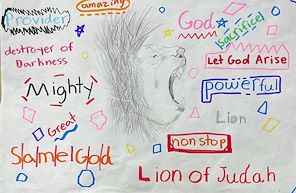 amazing
Provider
God
Sacrifice!
destroyer of
Darkness
Let God Arise
Mighty
powerful
Lion
Great
non stop
Same God
Lion of Judah